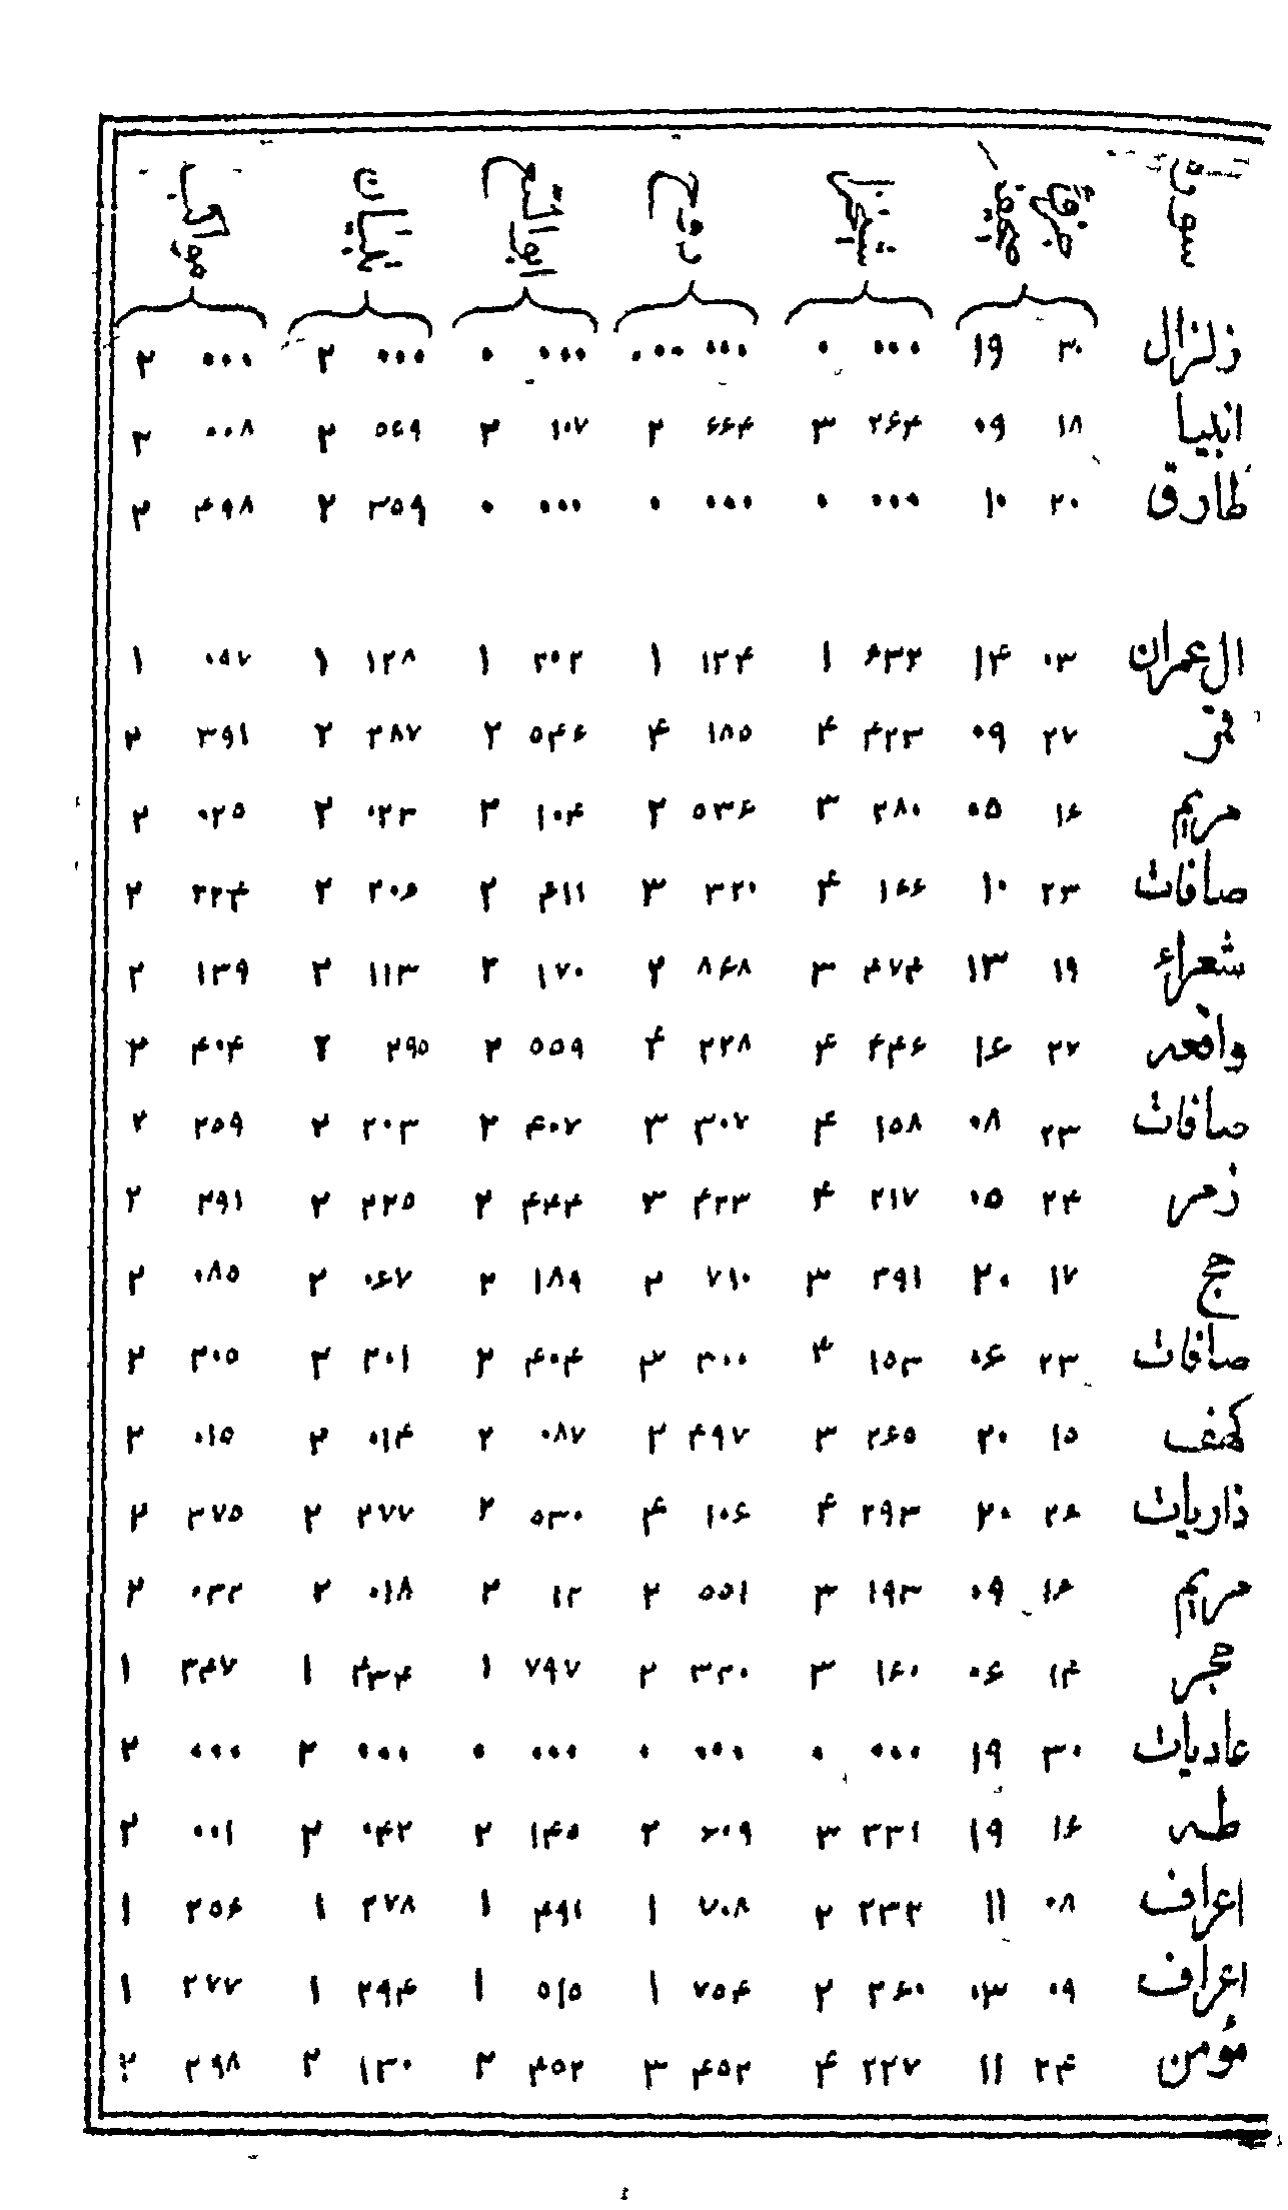 زلزال ۳۰ ۱۹ ۰۰۰ ۰ ۰۰۰ ۰۰۰ ۰۰۰ ۰ ۰۰۰ ۲ ۰۰۰ ۲
انبیا ۱۸ ۰۹ ۲۶۴ ۳ ۶۶۴ ۲ ۱۰۷ ۲ ۵۶۹ ۲ ۰۰۸ ۲
طارق ۲۰ ۱۰ ۰۰۰ ۰ ۰۰۰ ۰ ۰۰۰ ۰ ۳۵۹ ۲ ۴۹۸ ۲
ال عمران ۰۳ ۱۴ ۶۳۲ ۱ ۱۲۴ ۱ ۲۰۲ ۱ ۱۲۸ ۱ ۰۵۷ ۱
قمر ۲۷ ۰۹ ۴۲۳ ۴ ۱۸۵ ۴ ۵۴۶ ۲ ۲۸۷ ۲ ۳۹۱ ۲
مریم ۱۶ ۰۵ ۲۸۰ ۳ ۵۳۶ ۲ ۱۰۴ ۲ ۰۲۳ ۲ ۰۲۵ ۲
صافات ۲۳ ۱۰ ۱۶۶ ۴ ۳۲۰ ۳ ۴۱۱ ۲ ۲۰۶ ۲ ۲۲۴ ۲
شعراء ۱۹ ۱۳ ۴۷۴ ۳ ۸۶۸ ۲ ۱۷۰ ۲ ۱۱۳ ۲ ۱۳۹ ۲
واقعہ ۲۷ ۱۶ ۴۴۶ ۴ ۲۲۸ ۴ ۵۵۹ ۲ ۲۹۵ ۲ ۴۰۴ ۲
صافات ۲۳ ۰۸ ۱۵۸ ۴ ۳۰۷ ۳ ۴۰۷ ۲ ۲۰۳ ۲ ۲۵۹ ۲
زمر ۲۴ ۰۵ ۲۱۷ ۴ ۴۲۳ ۳ ۴۴۴ ۲ ۲۲۵ ۲ ۲۹۱ ۲
حج ۱۷ ۲۰ ۳۹۱ ۳ ۷۱۰ ۲ ۱۸۹ ۲ ۰۶۷ ۲ ۰۸۵ ۲
صافات ۲۳ ۰۶ ۱۵۳ ۴ ۳۰۰ ۳ ۴۰۴ ۲ ۲۰۱ ۲ ۲۰۵ ۲
کھف ۱۵ ۲۰ ۲۶۵ ۳ ۴۹۷ ۲ ۰۸۷ ۲ ۰۱۴ ۲ ۰۱۵ ۲
ذاریات ۲۶ ۲۰ ۲۹۳ ۴ ۱۰۶ ۴ ۵۳۰ ۲ ۲۷۷ ۲ ۳۷۵ ۲
مریم ۱۶ ۰۹ ۱۹۳ ۳ ۵۵۱ ۲ ۱۲ ۲ ۰۱۸ ۲ ۰۳۲ ۲
حجر ۱۴ ۰۶ ۱۶۰ ۳ ۳۲۰ ۲ ۷۹۷ ۱ ۴۳۴ ۱ ۳۴۷ ۱
عادیات ۳۰ ۱۹ ۰۰۰ ۰ ۰۰۰ ۰ ۰۰۰ ۰ ۰۰۰ ۲ ۰۰۰ ۲
طہ ۱۶ ۱۹ ۳۳۱ ۳ ۶۰۹ ۲ ۱۴۵ ۲ ۰۴۲ ۲ ۰۰۱ ۲
اعراف ۰۸ ۱۱ ۲۳۲ ۲ ۷۰۸ ۱ ۴۹۱ ۱ ۲۷۸ ۱ ۲۵۶ ۱
اعراف ۰۹ ۰۳ ۲۶۰ ۲ ۷۵۴ ۱ ۵۱۵ ۱ ۲۹۴ ۱ ۲۷۷ ۱
مؤمن ۲۴ ۱۱ ۲۲۷ ۴ ۴۵۲ ۳ ۴۵۲ ۲ ۱۳۰ ۲ ۲۹۸ ۲